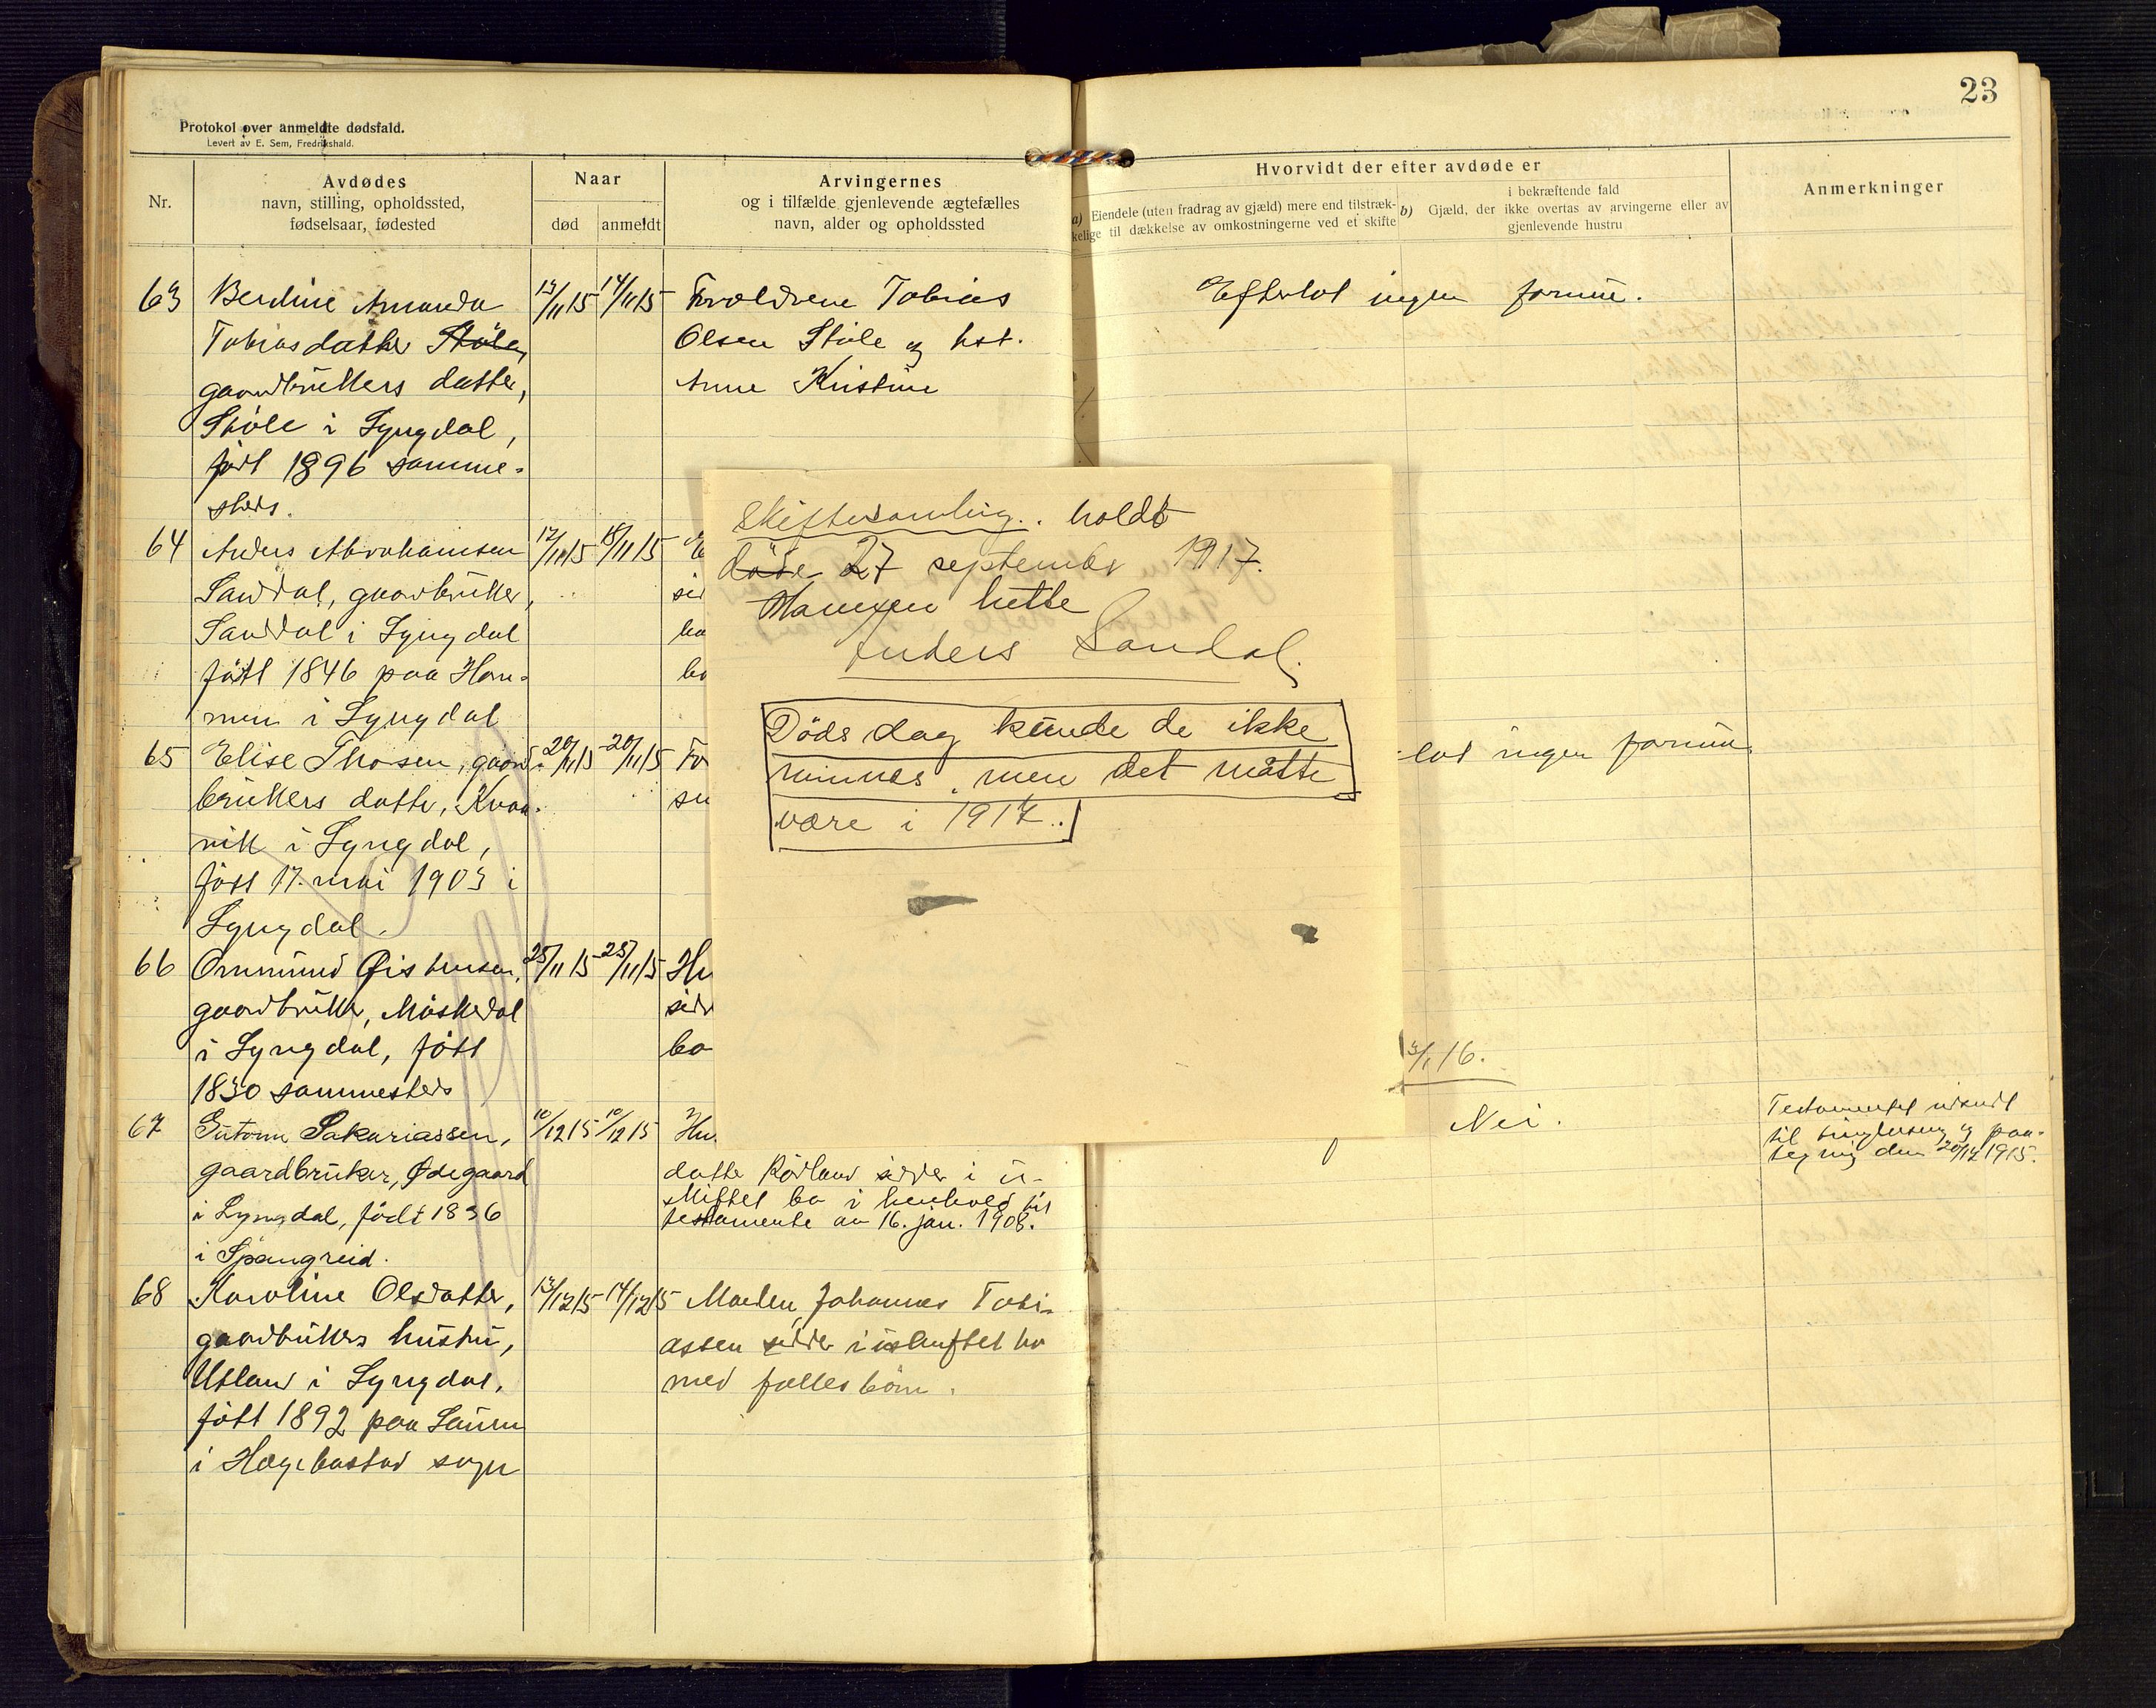 23
Protokol over anmeldte dødsfald.
Levert av E. Sem, Fredrikshald.
Nr.
Avdødes
navn, stilling, opholdssted,
fødselsaar, fødested
Naar
død
anmeldt
Arvingernes
og i tilfælde gjenlevende ægtefælles
navn, alder og opholdssted
Hvorvidt der efter avdøde er
a) Eiendele (uten fradrag av gjæld) mere end tilstræk-
kelige til dækkelse av omkostningerne ved et skifte
b) Gjæld, der
i bekræftende fald
ikke overtas av arvingerne eller av
gjenlevende hustru
Anmerkninger
63
Berdine Amanda
Tobiasdatter Støle,
gaardbrukers datter,
Støle i Lyngdal,
født 1896 samme-
steds.
13/11 15
14/11 15
Forældrene Tobias
Olsen Støle og hst.
Anne Kristine
Efterlot ingen formue.
64
Anders Abrahamsen
Sandal, gaardbruker,
Sandal i Lyngdal
født 1846 paa Ham-
men i Lyngdal
12/11 15
18/11 15
65
Elise Thorsen, gaard-
brukers datter, Kvaa-
vik i Lyngdal,
født 17. mai 1903 i
Lyngdal.
20/11 15
20/11 15
Fo
su
lot ingen formue
66
Ommund Øistensen,
gaardbruker, Møskedal
i Lyngdal, født
1830 sammesteds
25/11 15
25/11 15
Hu
sidd
bo
3/1 16.
67
Gutorm Sakariassen,
gaardbruker, Ødegaard
i Lyngdal, født 1836
i Spangreid.
10/12 15
10/12 15
Hu
datter Rødland sidder i u-
skiftet bo i henhold til
testamente av 16. jan. 1908.
Nei.
Testamentet utsendt
til tinglæsning og paa-
tegning den 20/12 1915.
68
Karoline Olsdatter,
gaardbrukers hustru,
Utland i Lyngdal,
født 1892 paa
i Hægebostad sogn
13/12 15
14/12 15
Manden, Johannes Tobi-
assen sidder i uskiftet bo
med fælles børn.
Skiftesamling.. holdt
døde 27 september 1917.
hette
Anders Sandal.
Døds dag kunde de ikke
minnes, men det måtte
være i 1917..